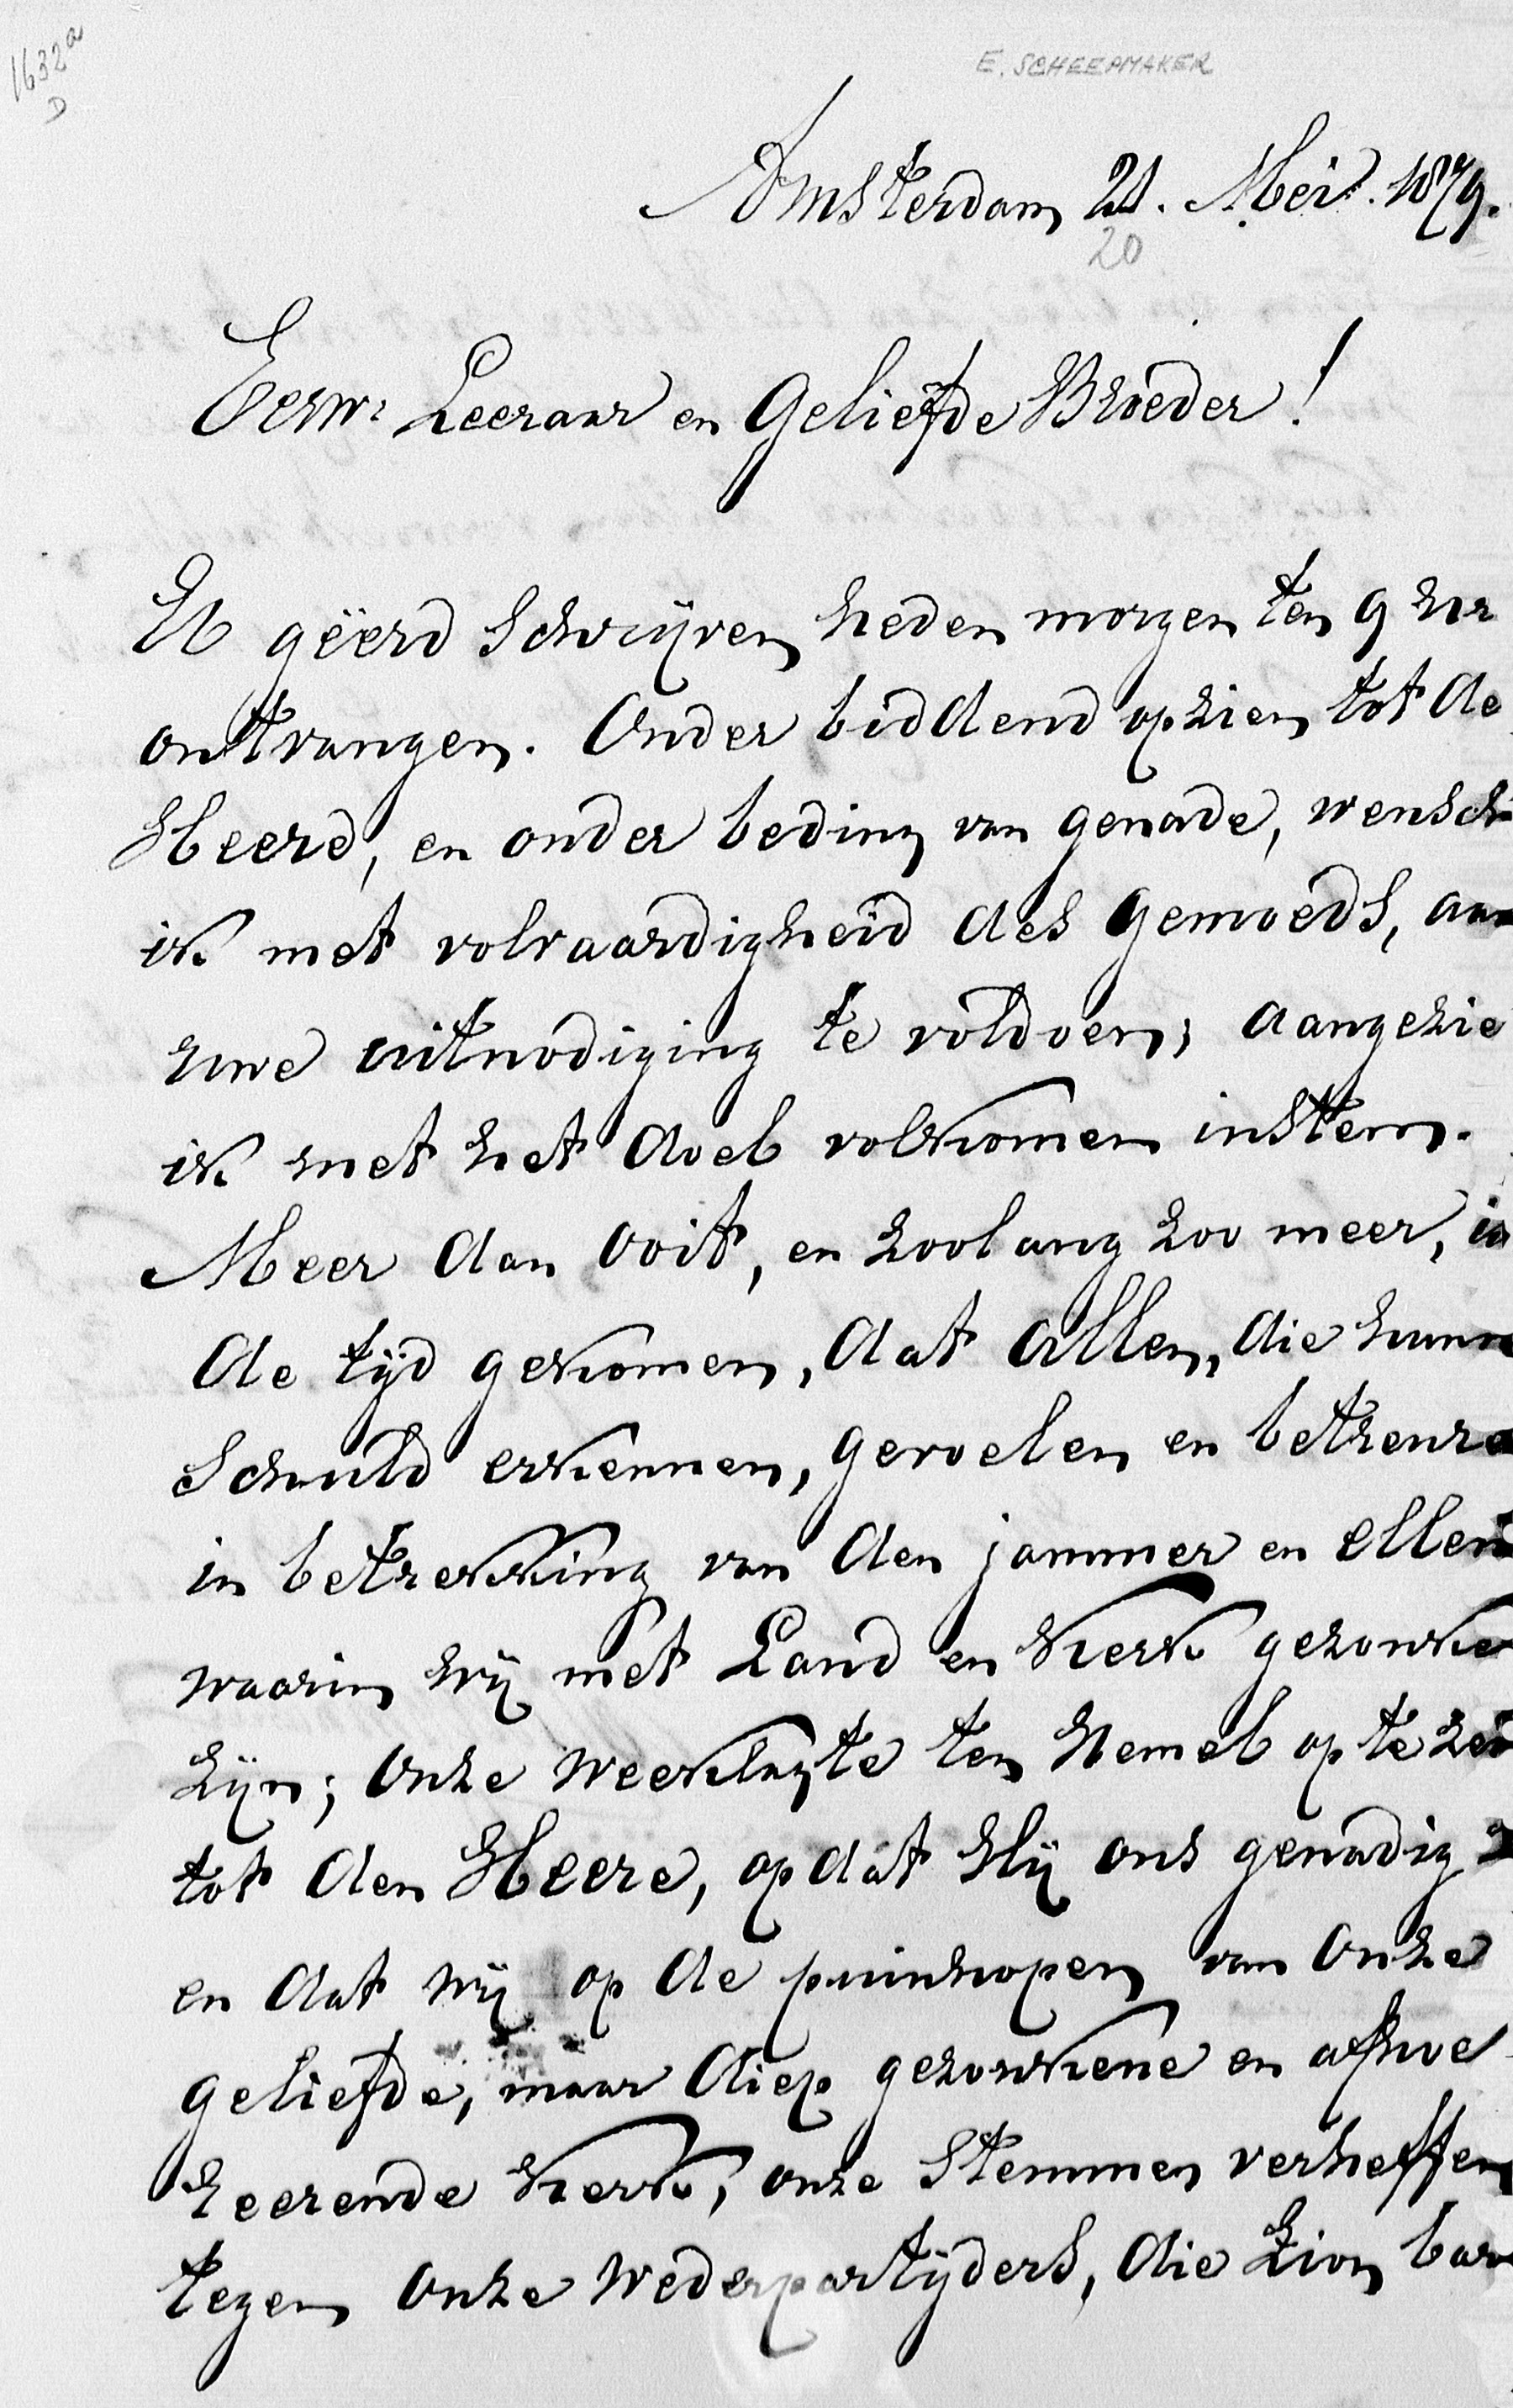 1632a
D
E. SCHEEPMAKER
Amsterdam 21. Mei. 1879.
20
Eerw: Leeraar en Geliefde Broeder!
U gëerd Schrijven heden morgen ten 9 uur
ontvangen. Onder biddend opzien tot de
Heere, en onder beding van genade, wensch
ik met volvaardigheid des gemoeds, aan
uwe uitnodiging te voldoen; aangezie
ik met het doel volkomen instem.
Meer dan ooit, en zoolang zoo meer, is
de tijd gekomen, dat allen, die hunn
Schuld erkennen, gevoelen en betreure
in betrekking van den jammer en ellen
waarin wij met Land en Kerk gezonke
zijn; onze weeklagte ten Hemel op te
tot den Heere, opdat Hij ons genadig
en dat wij op de puinhopen van onze
geliefde, maar diep gezonkene en afhoe
reerende Kerk, onze Stemmen verheffen
tegen onze wederpartijders, die Zion